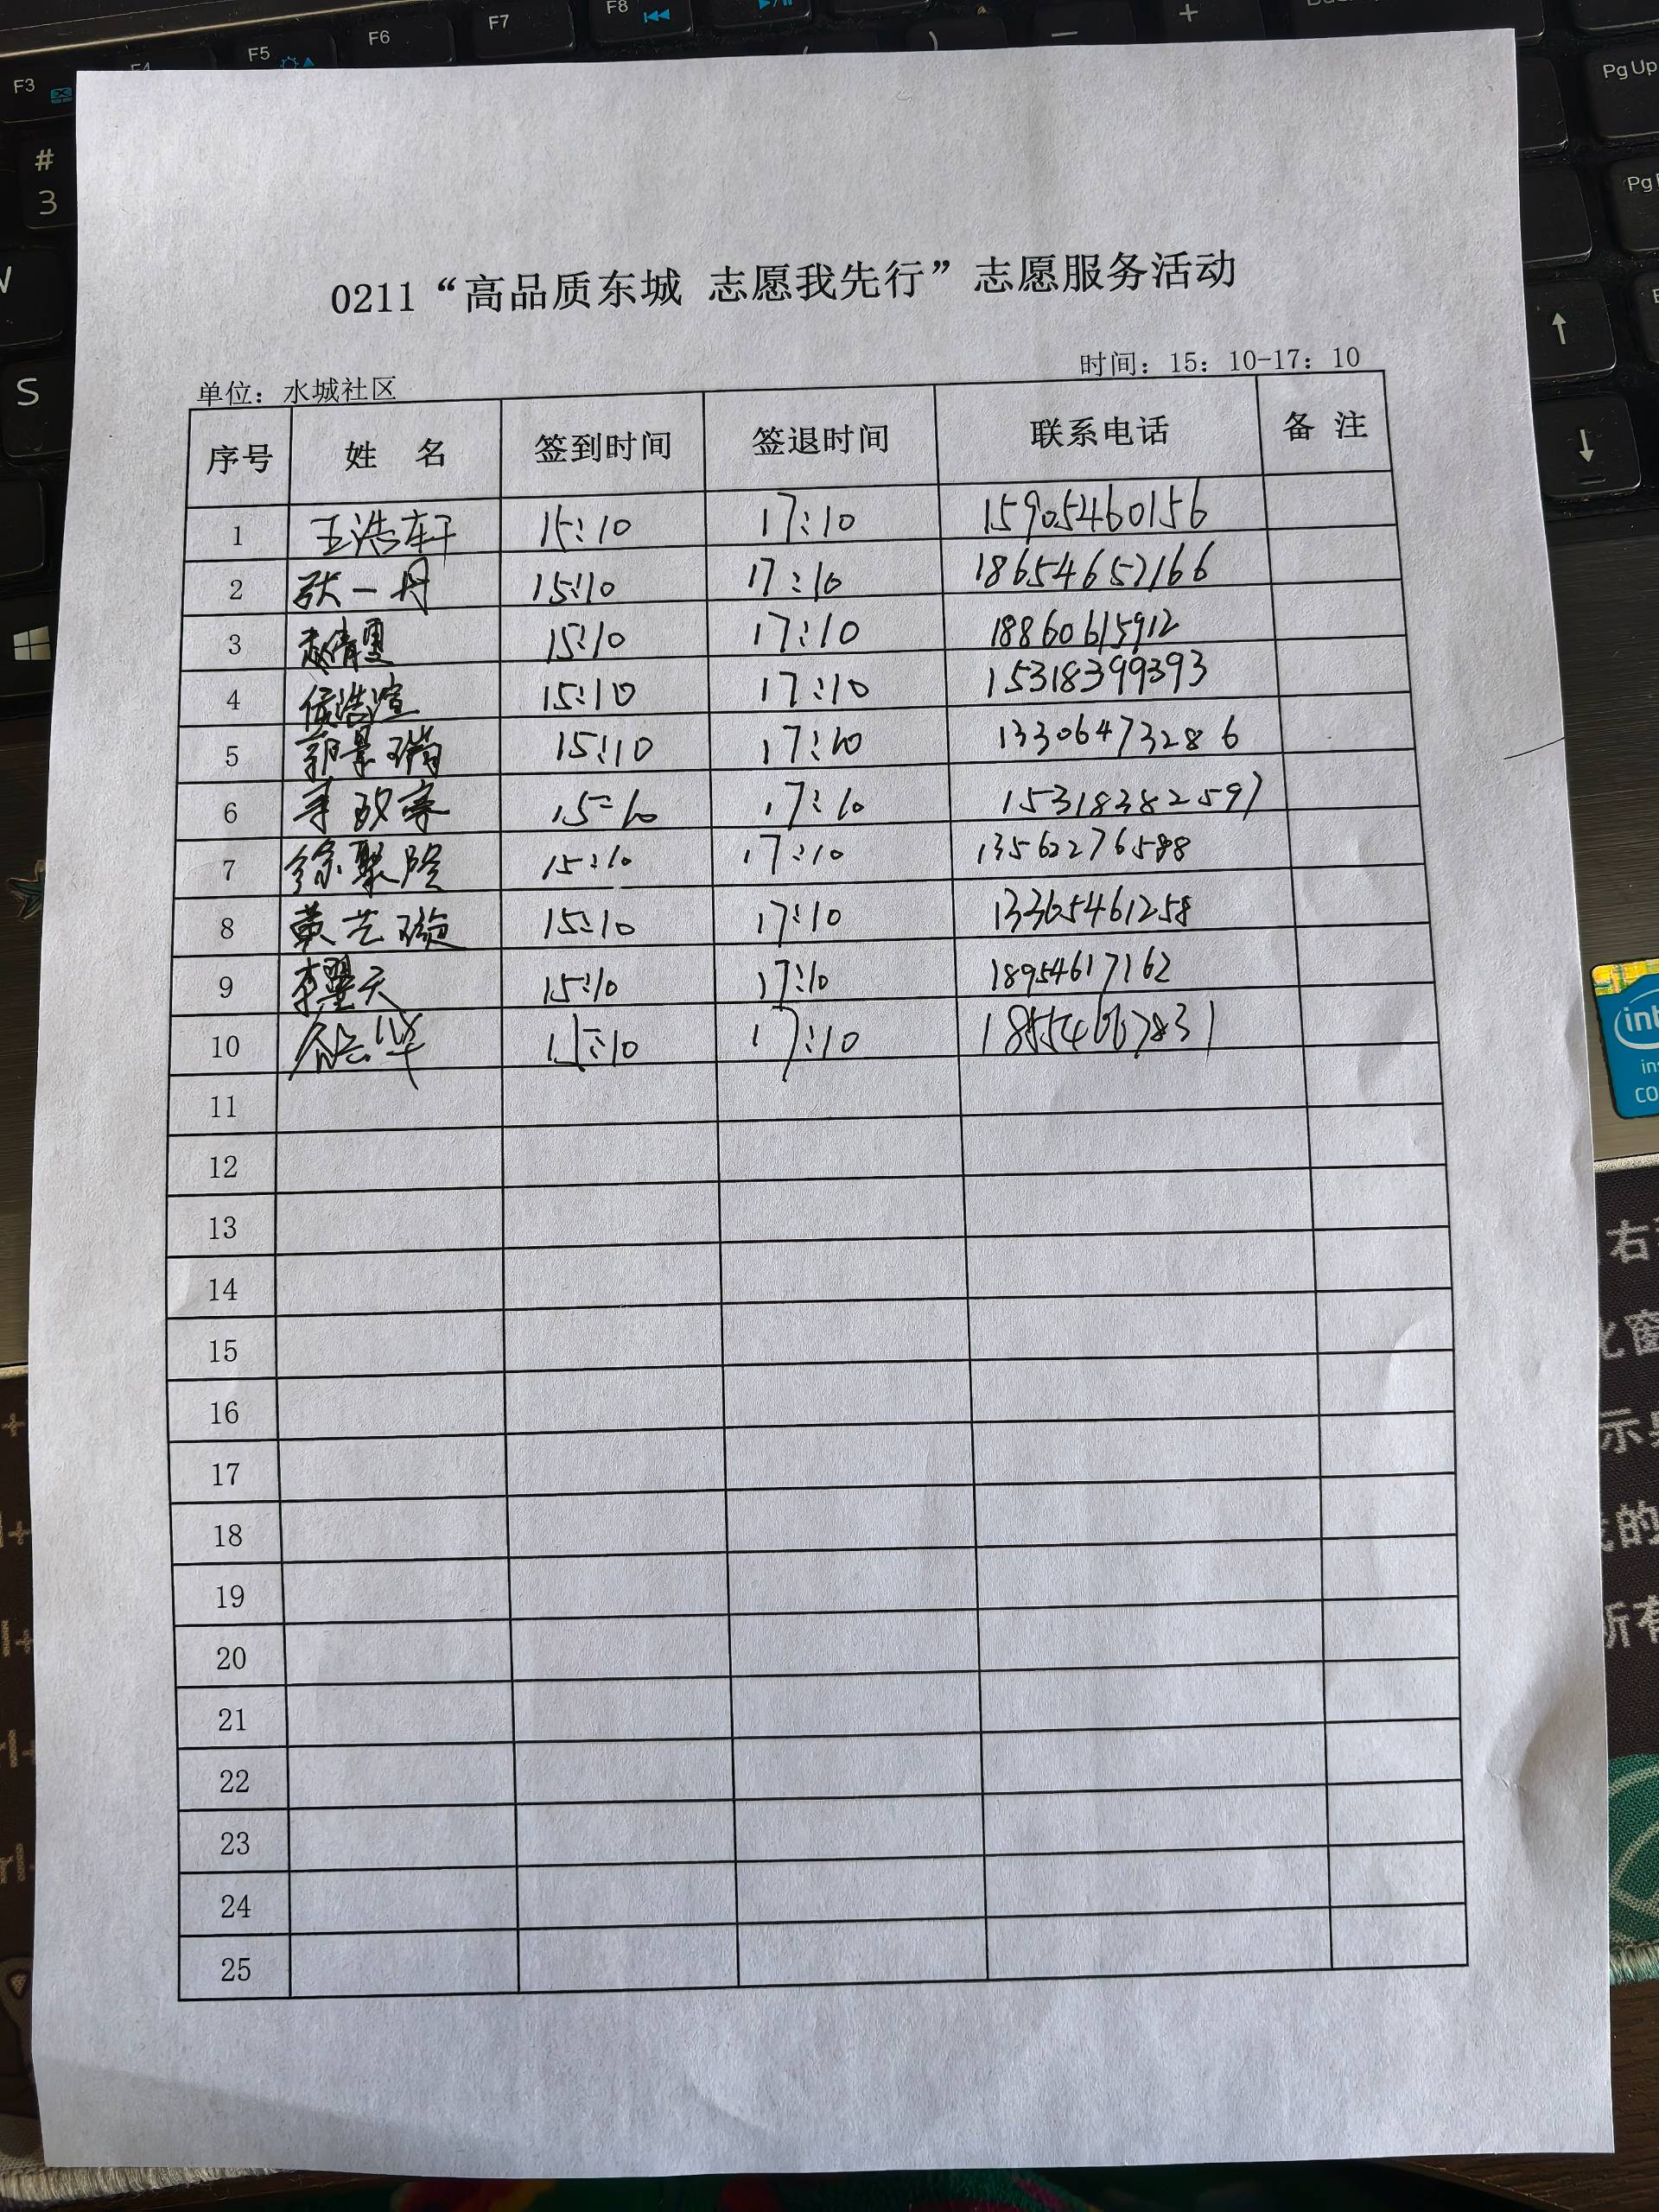 F3
F5
F6
F7
F8
Pg Up
#
3
S
0211“高品质东城 志愿我先行”志愿服务活动
单位：水城社区
时间：15：10-17：10
序号 姓 名 签到时间 签退时间 联系电话 备 注
1 王浩轩 15:10 17:10 15905460156
2 张一丹 15:10 17:10 18654652166
3 15:10 17:10 18860615912
4 侯浩渲 15:10 17:10 15318399393
5 郭景瑞 15:10 17:10 13306473286
6 15:10 17:10 15318382597
7 徐聚隆 15:10 17:10 13562276588
8 黄艺璇 15:10 17:10 13365461258
9 李曌天 15:10 17:10 18954617162
10 15:10 17:10
11
12
13
14
15
16
17
18
19
20
21
22
23
24
25